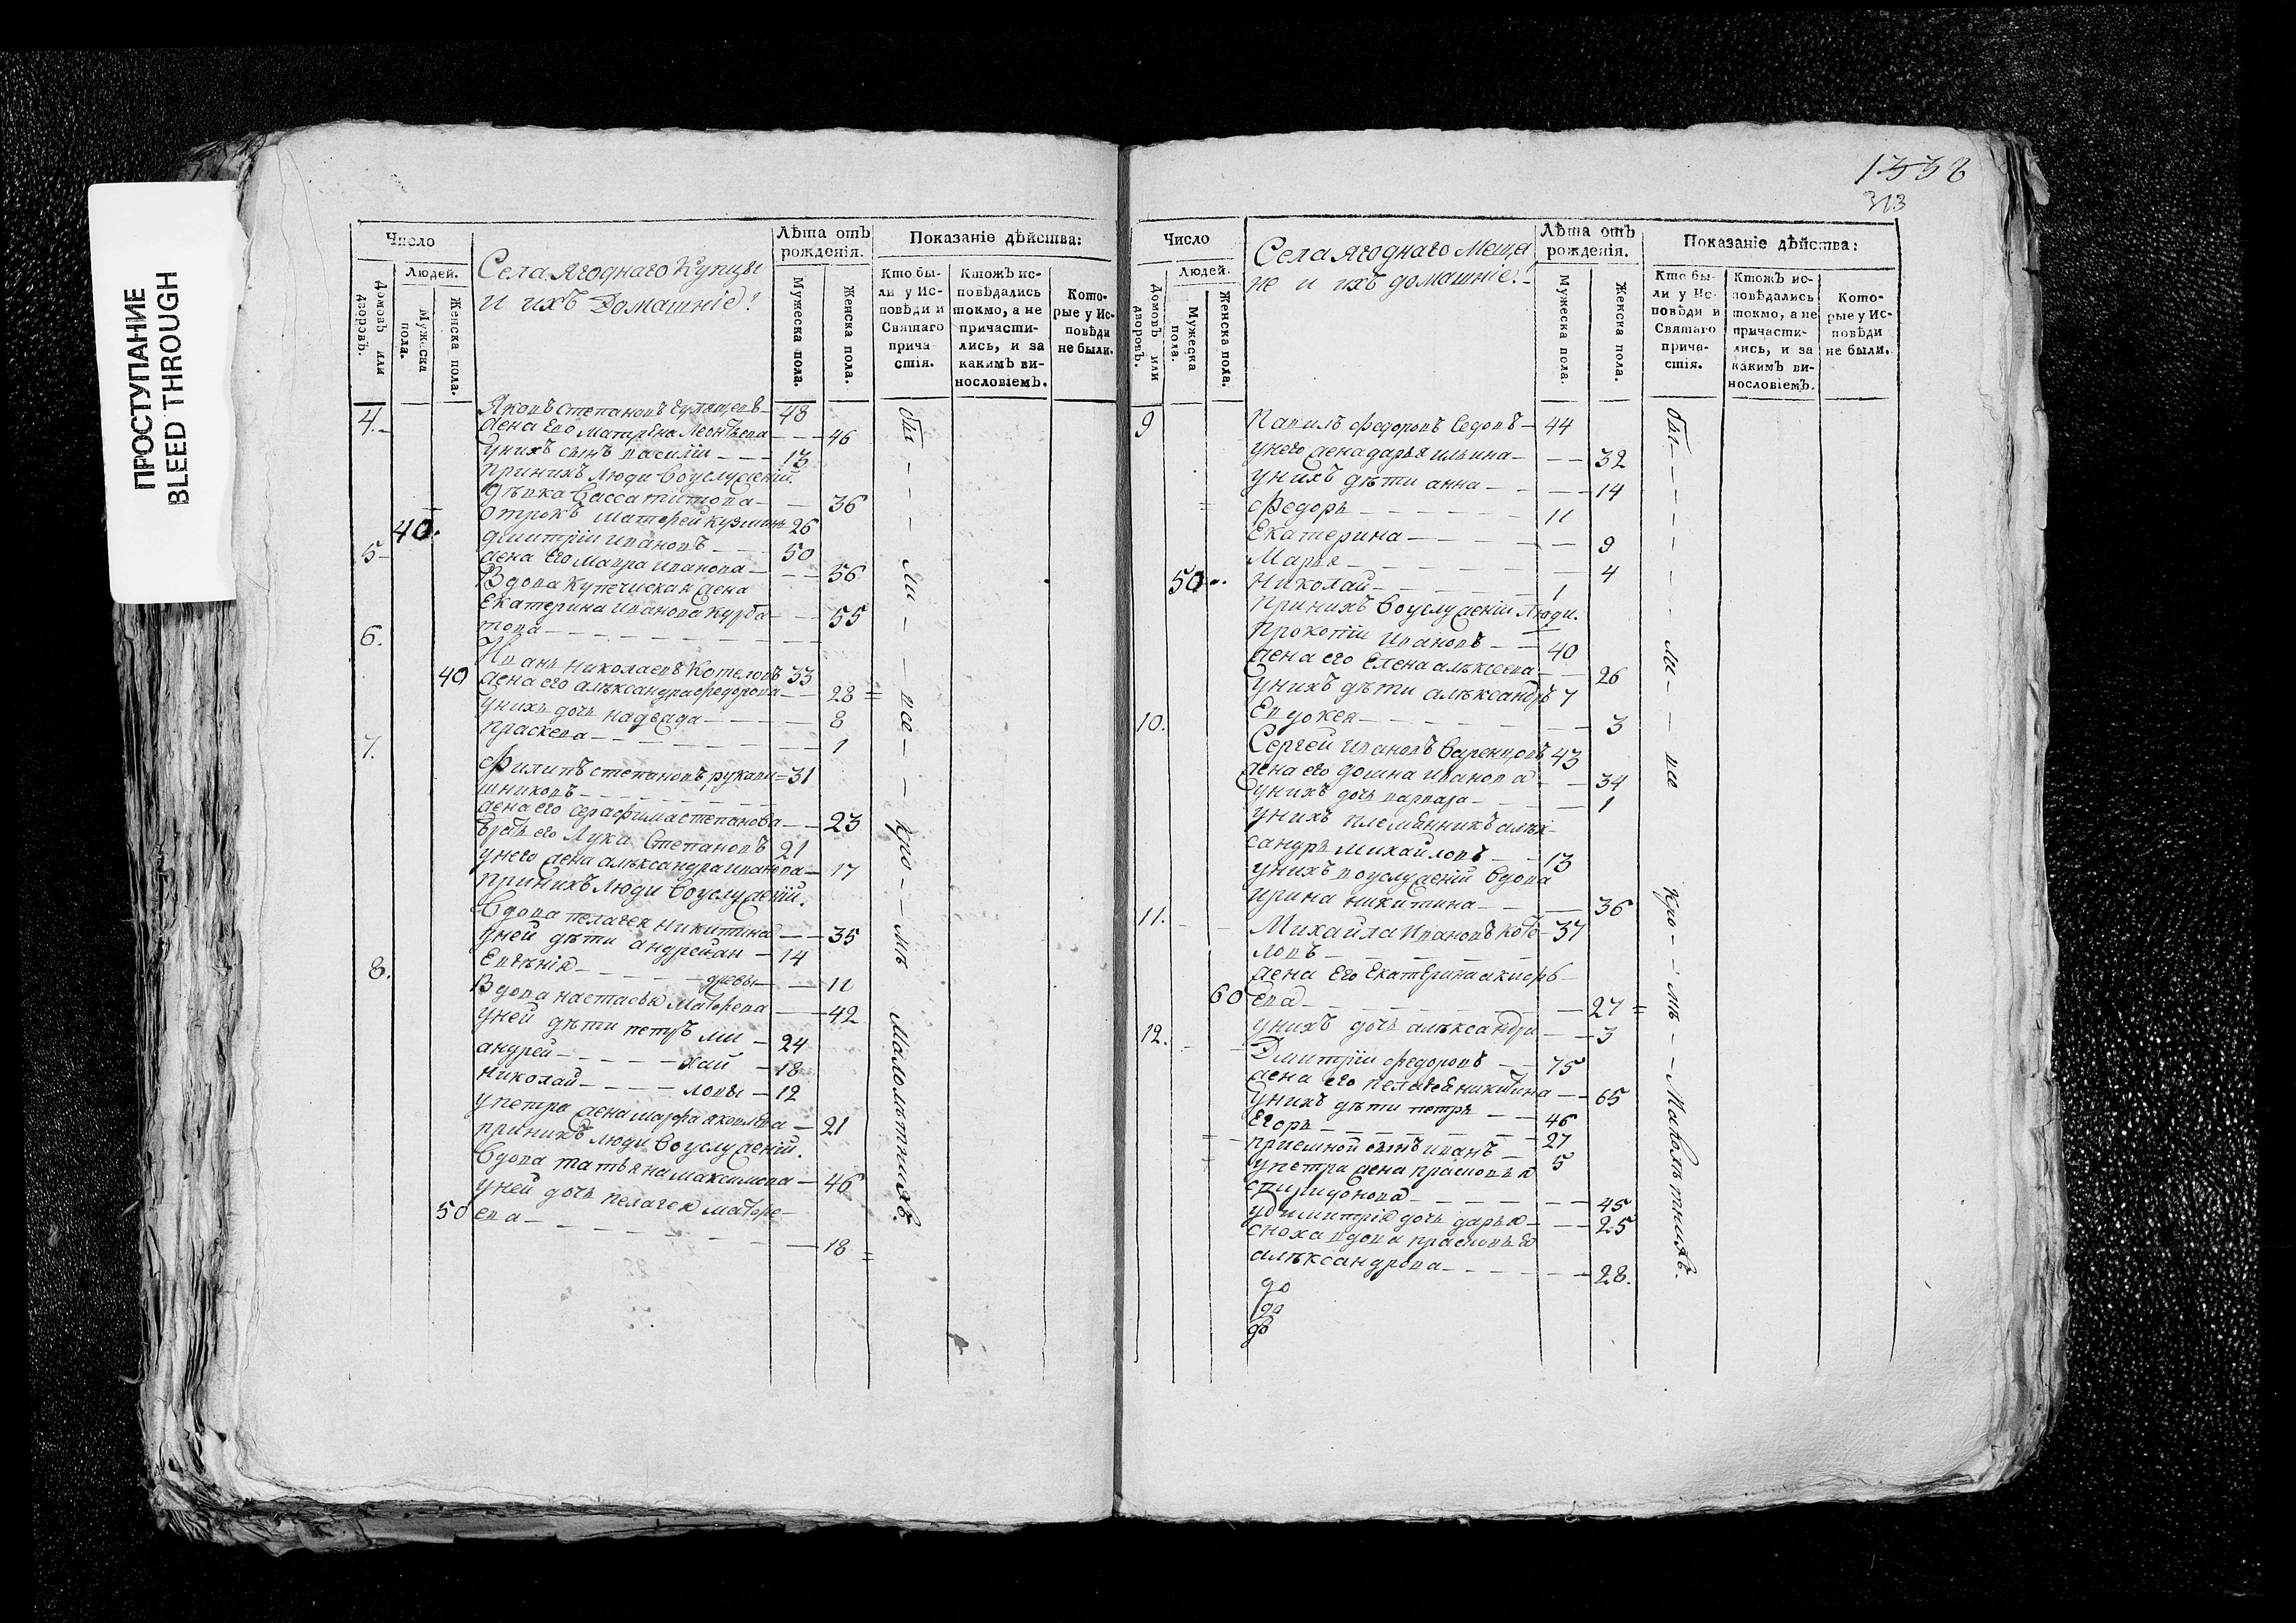 ПРОСТУПАНИЕ
BLEED THROUGH
Число
Людей.
Домовъ или дворовъ.
Мужеска пола.
Женска пола.
Села Ягоднаго Купцы
и ихъ Домашніе:
Лѣта отъ рожденія.
Мужеска пола.
Женска пола.
Показаніе дѣйства:
Кто бы-
ли у Ис-
повѣди и
Святаго
прича-
стія.
Ктожъ ис-
повѣдались
токмо, а не
причасти-
лись, и за
какимъ ви-
нословіемъ.
Кото-
рые у Ис-
повѣди
не были.
4. Яковъ Степановъ 48
жена его Матрена Леонтьева 46
у нихъ сынъ василіи 13
при нихъ люди воуслуженіи.
дѣвка Васса титова 36
40. отрокъ Матфей кузминъ 26
5 димитріи ивановъ 50
жена его мавра иванова 56
Вдова купеческая жена
Екатерина иванова Курба- 55
това
6. Иванъ николаевъ Котеловъ 33
40 жена его алѣксандра федорова 28
у нихъ дочь надежда 8
праскева 1
7. Филипъ степановъ рукави- 31
шниковъ
жена его серафима степанова 23
братъ его Лука Степановъ 21
у него жена алѣксандра иванова 17
при нихъ люди воуслуженіи.
Вдова пелагея никитина 35
у ней дѣти андрей 14
Евгѣнія 11
8. Вдова настасья Матфева 42
у ней дѣти петръ ми 24
андрей хай 18
николай ловы 12
у петра жена марфа яковлѣва 21
при нихъ люди воуслуженіи.
Вдова татьяна максимова 46
у ней дочь пелагея матфе-
50 ева 18
бы ли на испо мъ Малолѣтнихъ.
1338
313
Число
Людей.
Домовъ или дворовъ.
Мужеска пола.
Женска пола.
Села Ягоднаго Меща
не и ихъ домашніе:
Лѣта отъ рожденія.
Мужеска пола.
Женска пола.
Показаніе дѣйства:
Кто бы-
ли у Ис-
повѣди и
Святаго
прича-
стія.
Ктожъ ис-
повѣдались
токмо, а не
причасти-
лись, и за
какимъ ви-
нословіемъ.
Кото-
рые у Ис-
повѣди
не были.
9 Павилъ федоровъ Седовъ 44
у него жена дарья ильина 32
у нихъ дѣти анна 14
федоръ 11
Екатерина 9
Марья 4
50 Николай 1
при нихъ воуслуженіи люди.
прокопіи ивановъ 40
жена его Елена алѣксеева 26
у нихъ дѣти алѣксандръ 7
Евдокея 3
10. Сергей ивановъ Варенцовъ 43
жена его домна иванова 34
у нихъ дочь варвара 1
у нихъ племянникъ алѣк-
сандръ михайловъ 13
у нихъ воуслуженіи вдова
ирина никитина 36
11. Михайла Ивановъ Коте- 37
ловъ
жена его Екатерина акифь
60 ева 27
у нихъ дочь алѣксандра 3
12. Дмитріи федоровъ 75
жена его пелагея никитина 65
у нихъ дѣти петръ 46
Егоръ 27
приемной сынъ иванъ 5
у петра жена прасковья
спиридонова 45
у димитрія дочь дарья 25
сноха вдова прасковья
алѣксандрова 28.
до
до
до
бы ли на Кро мъ Малолѣтнихъ.